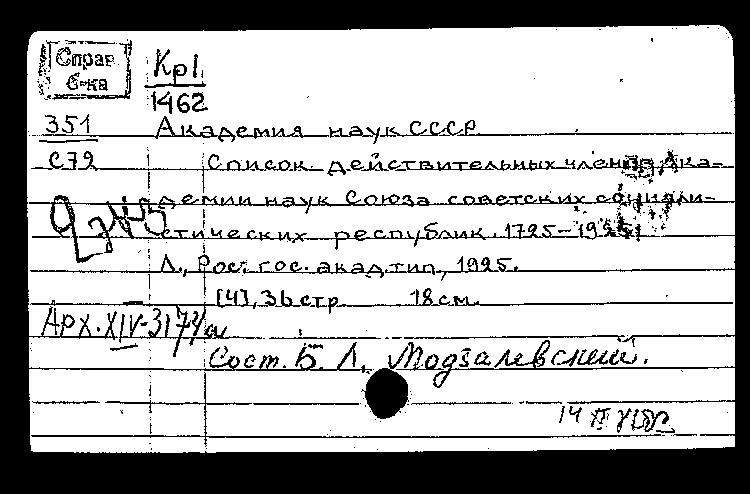 Справ
б-ка
Кр1
1462
351
С79
Академия наук СССР
Список действительных членов Ака-
демии наук Союза советских социали-
стических республик. 1725-1925.
Л., Рос. гос. акад. тип., 1925.
[4], 36 стр. 18 см.
Арх. XIV-317
Сост. Б. Л. Модзалевский.
14